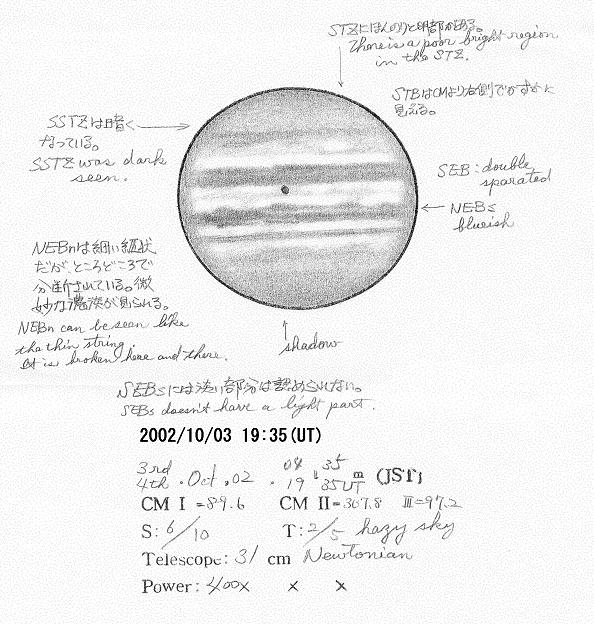 STZにほんのりと明部がある。
There is a poor bright region
in the STZ.
STBはCMより右側でかすかに
見える。
SSTZは暗く
なっている。
SSTZ was dark
seen.
SEB : double
sparated
NEBs
blueish
NEBnは細い紐状
だが、ところどころで
分断されている。微
妙な濃淡が見られる。
NEBn can be seen like
the thin string.
It is broken here and there.
shadow
SEBsには淡い部分は認められない。
SEBs doesn't have a light part.
2002/10/03 19:35(UT)
3rd 04 35
4th . Oct . 02 . 19 35 UT m (JST)
CM I =89.6 CM II=307.8 III=97.2
S: 6/10 T: 2/5 hazy sky
Telescope: 31 cm Newtonian
Power: 400x x x